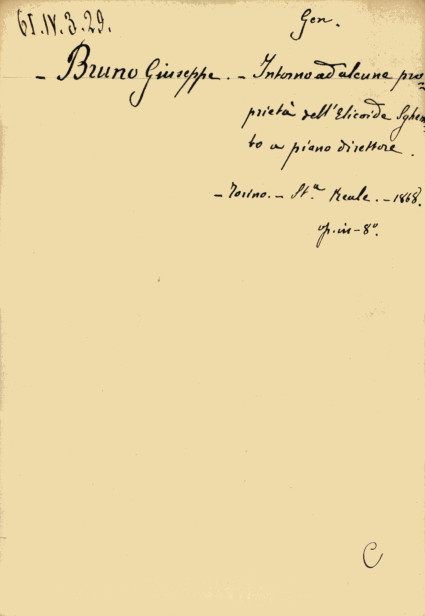 61.IV.3.29.
Gen.
- Bruno Giuseppe. - Intorno ad alcune pro-
prietà dell'Elicoide Sghem-
bo a piano direttore.
- Torino. - St.a Reale. - 1868.
op. in-8°.
C